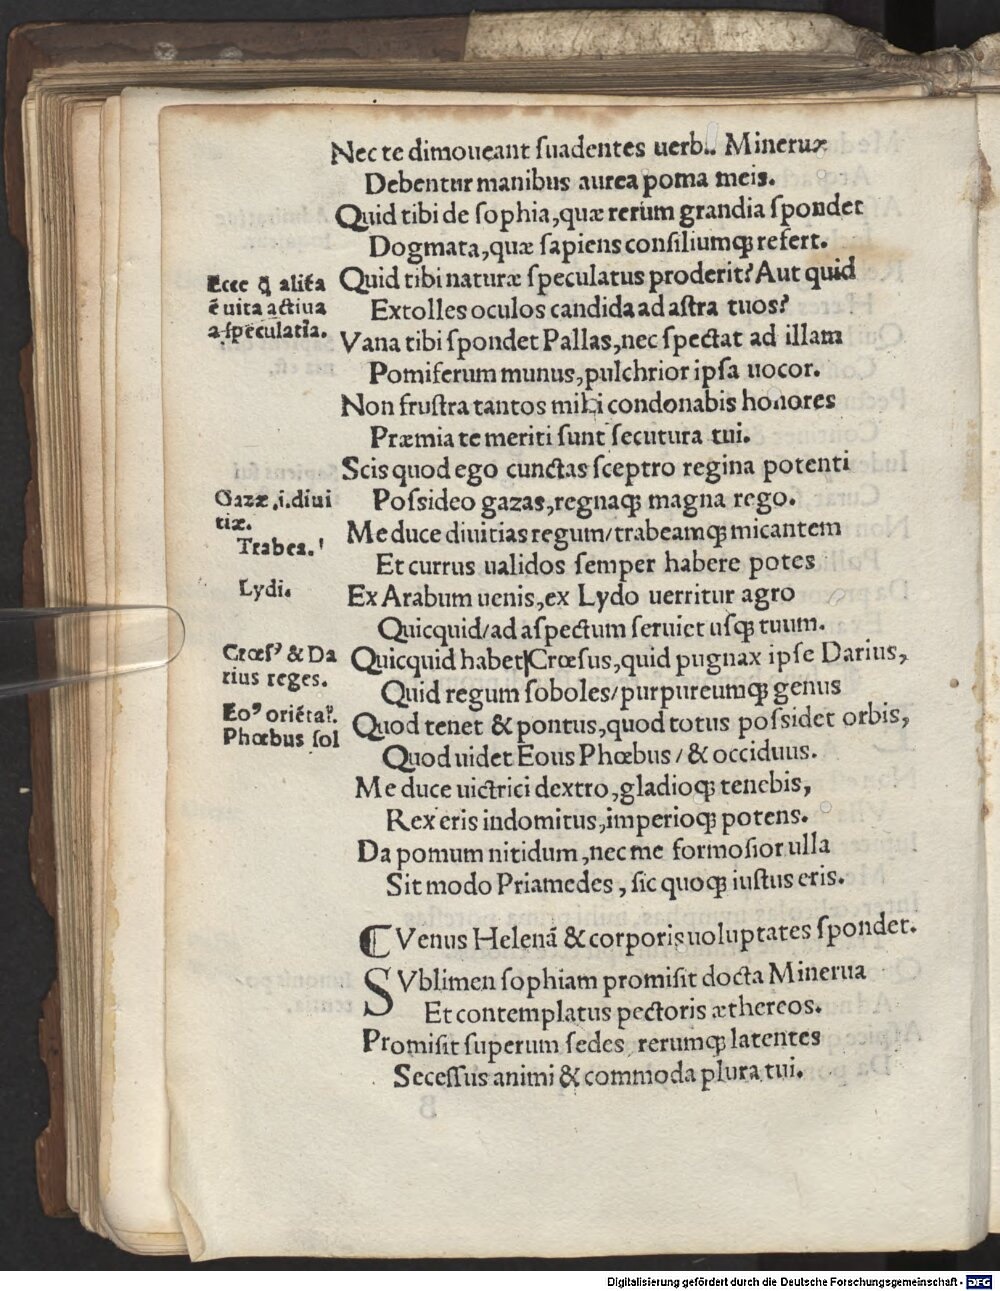 Nec te dimoueant suadentes uerb.. Mineruæ
Debentur manibus aurea poma meis.
Quid tibi de sophia, quæ rerum grandia spondet
Dogmata, quæ sapiens consiliumꝙ refert.
Ecce ꝗ̃ alit̃a
ẽ uita actiua
a speculatĩa.
Quid tibi naturæ speculatus proderit? Aut quid
Extolles oculos candida ad astra tuos?
Vana tibi spondet Pallas, nec spectat ad illam
Pomiferum munus, pulchrior ipsa uocor.
Non frustra tantos mihi condonabis honores
Præmia te meriti sunt secutura tui.
Scis quod ego cunctas sceptro regina potenti
Gazæ .i. diui
tiæ.
Possideo gazas, regnaꝙ magna rego.
Trabea.
Me duce diuitias regum/ trabeamꝙ micantem
Et currus ualidos semper habere potes
Lydi.
Ex Arabum uenis, ex Lydo uerritur agro
Quicquid/ ad aspectum seruiet usꝙ tuum.
Crœsꝰ & Da
rius reges.
Quicquid habet Crœsus, quid pugnax ipse Darius,
Quid regum soboles/ purpureumꝙ genus
Eoꝰ oriẽtaꝉ.
Phœbus sol
Quod tenet & pontus, quod totus possidet orbis,
Quod uidet Eous Phœbus/ & occiduus.
Me duce uictrici dextro, gladioꝙ tenebis,
Rex eris indomitus, imperioꝙ potens.
Da pomum nitidum, nec me formosior ulla
Sit modo Priamedes, sic quoꝙ iustus eris.
¶ Venus Helenã & corporis uoluptates spondet.
SVblimen sophiam promisit docta Minerua
Et contemplatus pectoris æthereos.
Promisit superum sedes, rerumꝙ latentes
Secessus animi & commoda plura tui.
Digitalisierung gefördert durch die Deutsche Forschungsgemeinschaft - DFG